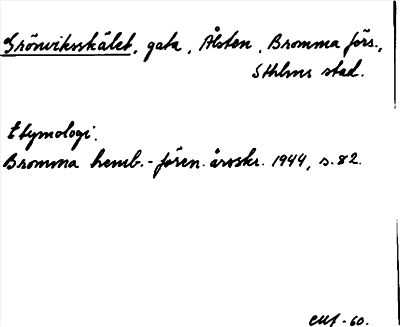 Grönviksskälet, gata, Ålsten, Bromma förs.,
Sthlms stad.
Etymologi.
Bromma hemb.-fören. årsskr. 1944, s. 82.
-60.